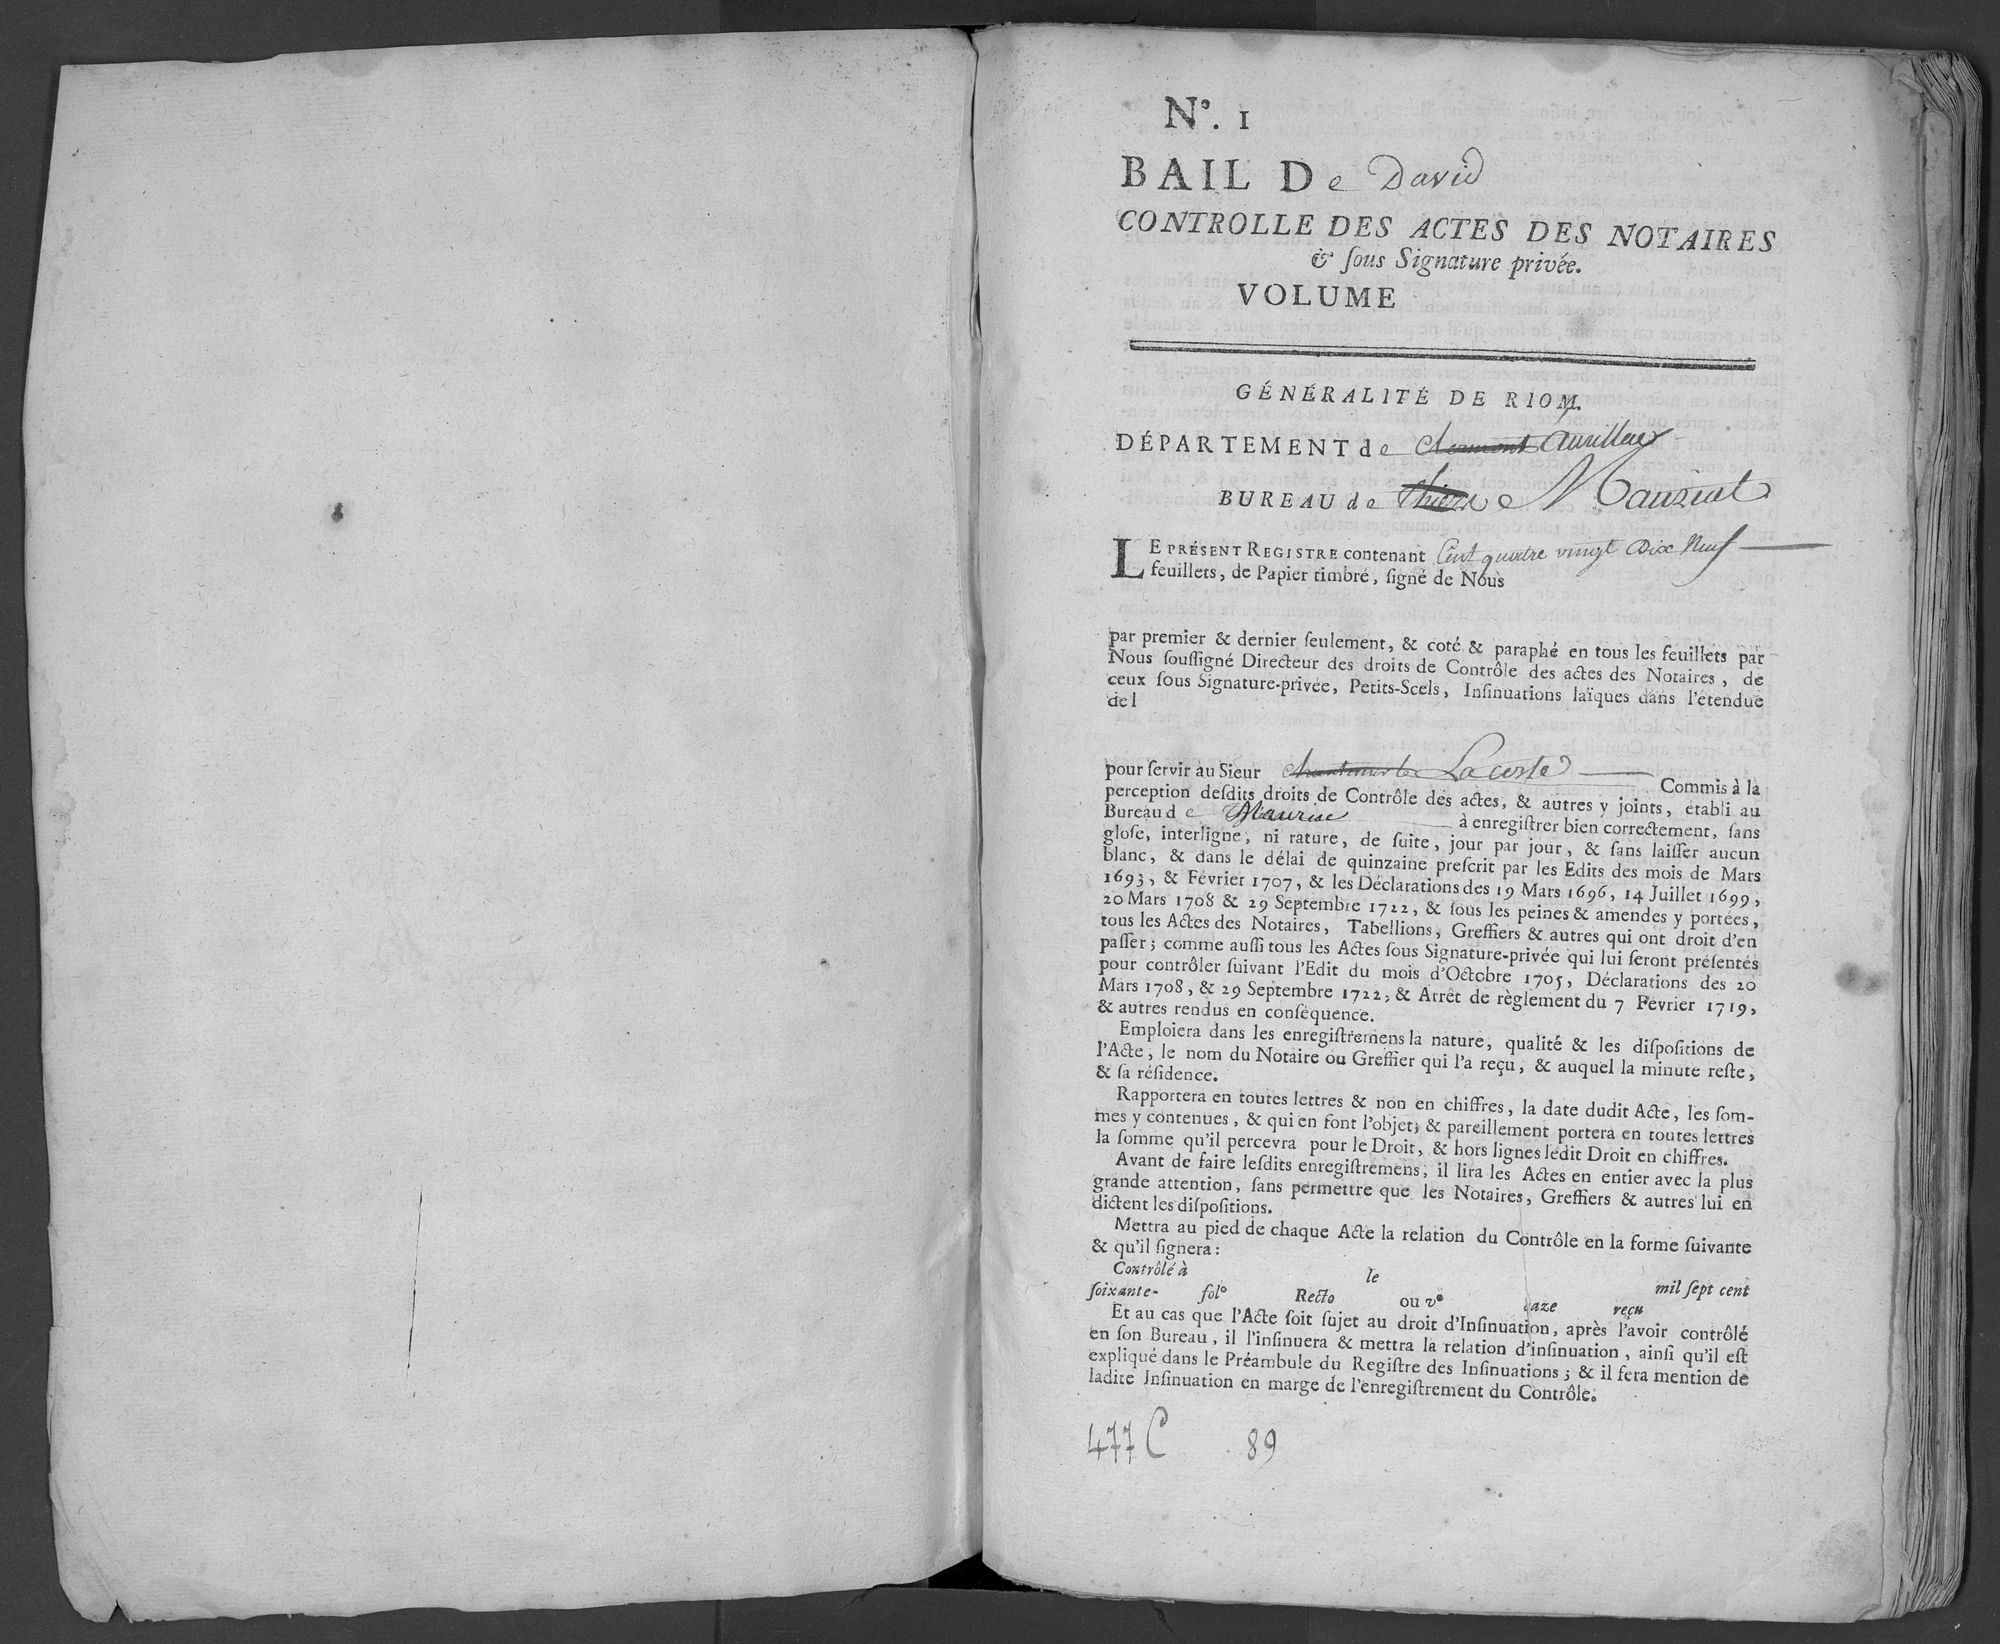 Nº. 1
BAIL De David
CONTROLLE DES ACTES DES NOTAIRES
& ſous Signature privée.
VOLUME
GÉNÉRALITÉ DE RIOM.
DÉPARTEMENT de Clermont Aurillac
BUREAU de Thiers Mauriat
LE PRÉSENT REGISTRE contenant Cent quatre vingt Dix Neuf
feuillets, de Papier timbré, ſigné de Nous
par premier & dernier ſeulement, & coté & paraphé en tous les feuillets par
Nous ſouſſigné Directeur des droits de Contrôle des actes des Notaires, de
ceux ſous Signature-privée, Petits-Scels, Inſinuations laïques dans l'étendue
de l
pour ſervir au Sieur Lacoste Commis à la
perception deſdits droits de Contrôle des actes, & autres y joints, établi au
Bureau de Maurice à enregiſtrer bien correctement, ſans
gloſe, interligne, ni rature, de ſuite, jour par jour, & ſans laiſſer aucun
blanc, & dans le délai de quinzaine preſcrit par les Edits des mois de Mars
1693, & Février 1707, & les Déclarations des 19 Mars 1696, 14 Juillet 1699,
20 Mars 1708 & 29 Septembre 1722, & ſous les peines & amendes y portées,
tous les Actes des Notaires, Tabellions, Greffiers & autres qui ont droit d'en
paſſer; comme auſſi tous les Actes ſous Signature-privée qui lui ſeront préſentés
pour contrôler ſuivant l'Edit du mois d'Octobre 1705, Déclarations des 20
Mars 1708, & 29 Septembre 1722, & Arrêt de règlement du 7 Février 1719,
& autres rendus en conſéquence.
Emploiera dans les enregiſtremens la nature, qualité & les diſpoſitions de
l'Acte, le nom du Notaire ou Greffier qui l'a reçu, & auquel la minute reſte,
& ſa réſidence.
Rapportera en toutes lettres & non en chiffres, la date dudit Acte, les ſom-
mes y contenues, & qui en font l'objet; & pareillement portera en toutes lettres
la ſomme qu'il percevra pour le Droit, & hors lignes ledit Droit en chiffres.
Avant de faire leſdits enregiſtremens, il lira les Actes en entier avec la plus
grande attention, ſans permettre que les Notaires, Greffiers & autres lui en
dictent les diſpoſitions.
Mettra au pied de chaque Acte la relation du Contrôle en la forme ſuivante
& qu'il ſignera:
Contrôlé à le mil ſept cent
ſoixante- folº Recto ou vº caze reçu
Et au cas que l'Acte ſoit ſujet au droit d'Inſinuation, après l'avoir contrôlé
en ſon Bureau, il l'inſinuera & mettra la relation d'inſinuation, ainſi qu'il eſt
expliqué dans le Préambule du Regiſtre des Inſinuations; & il fera mention de
ladite Inſinuation en marge de l'enregiſtrement du Contrôle.
477 C 89